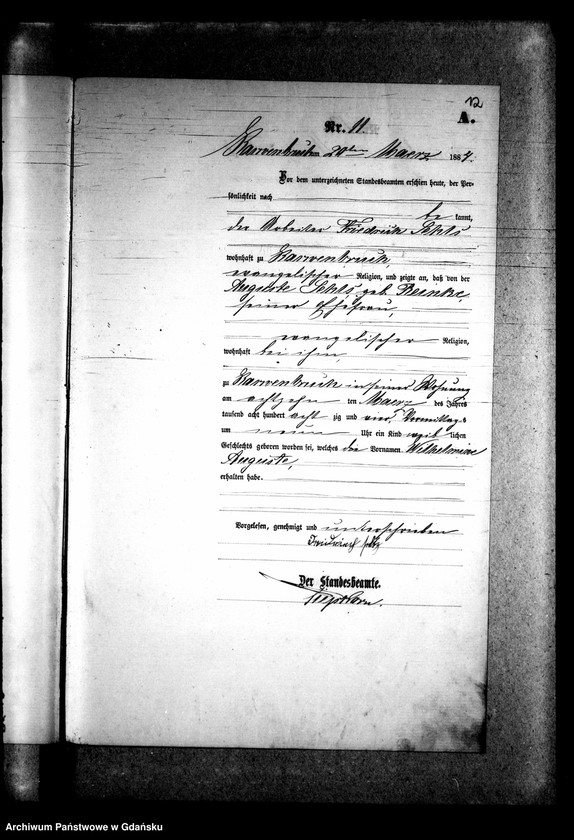 12
A.
Nr. 11.
Karwenbruch am 20ten Maerz 1884.
Vor dem unterzeichneten Standesbeamten erschien heute, der Per-
sönlichkeit nach
be kannt,
der Arbeiter Friedrich
wohnhaft zu Karwenbruch
evangelischer Religion, und zeigte an, daß von der
Auguste geb. Reinke,
seiner Ehefrau,
evangelischer Religion,
wohnhaft bei ihm,
zu Karwenbruch in seiner Wohnung
am achtzehn ten Maerz des Jahres
tausend acht hundert acht zig und vier, Vormittags
um neun Uhr ein Kind weib lichen
Geschlechts geboren worden sei, welches die Vornamen Wilhelmine
Auguste,
erhalten habe.
Vorgelesen, genehmigt und unterschrieben
Der Standesbeamte.
Archiwum Państwowe w Gdańsku